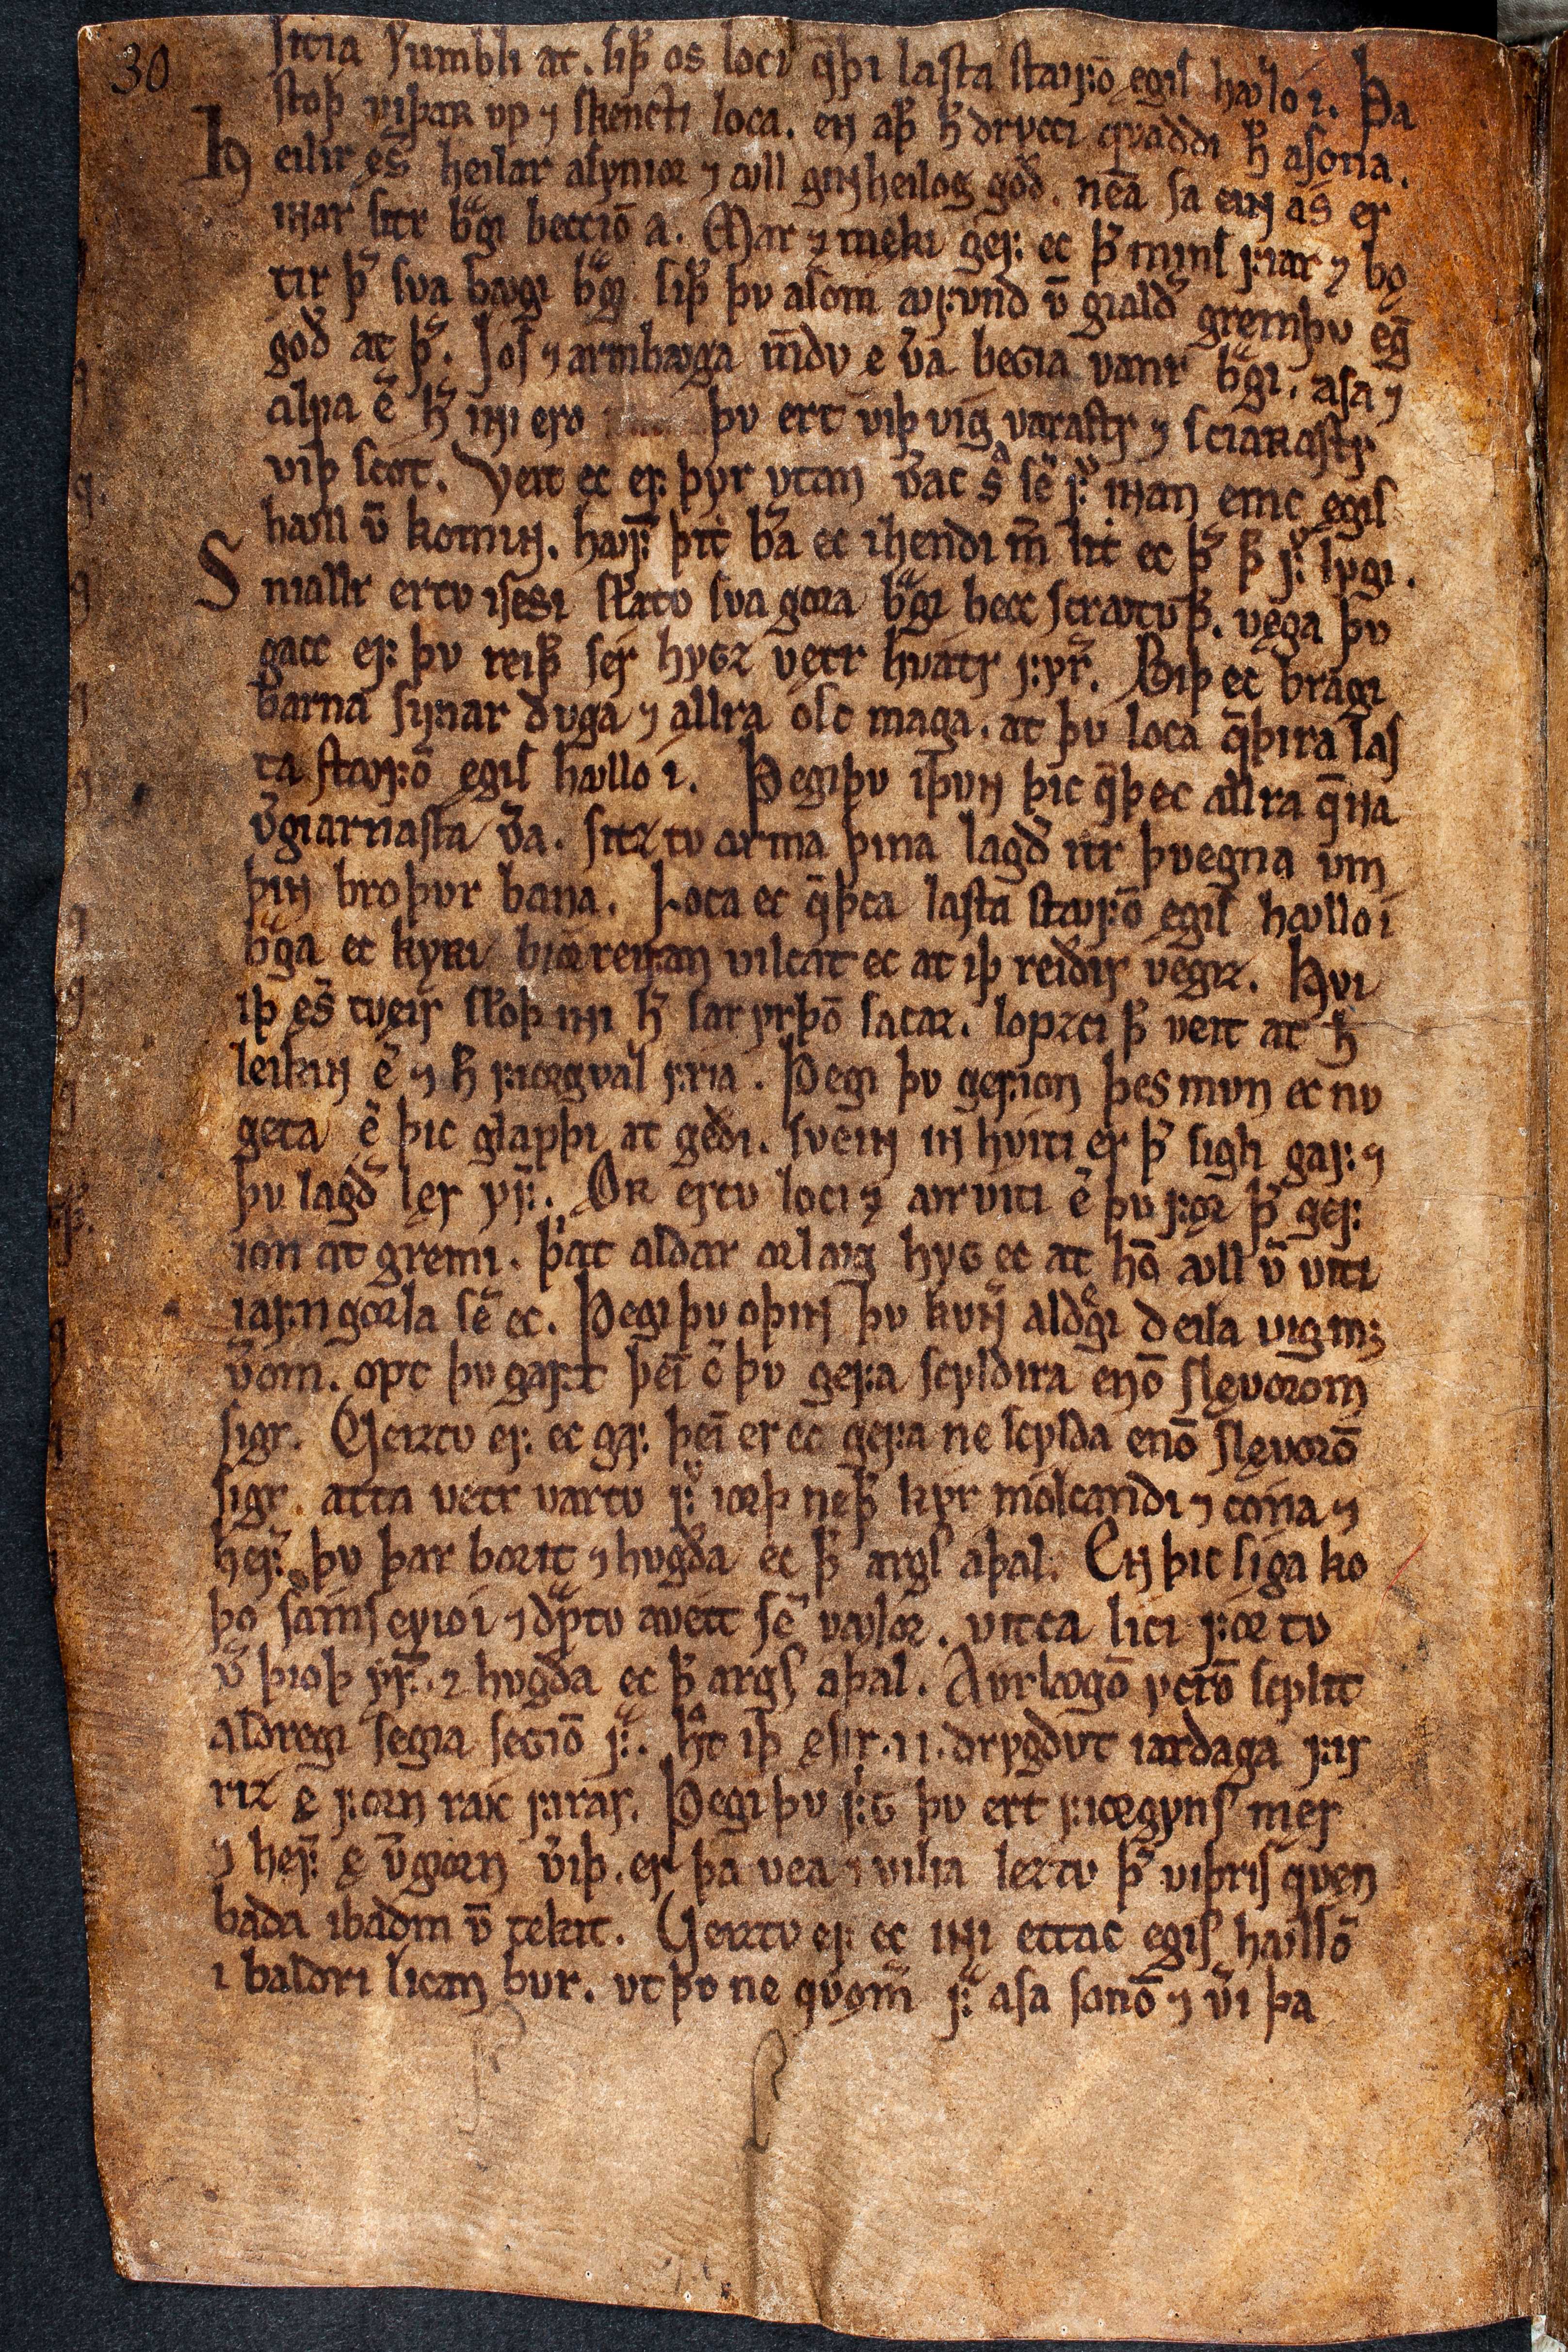 30
sitia sumbli at. siþ os loci q̄þi lasta stavfō ęgis havllō i. Þa
stoþ viþaʀ vp ⁊ skencti loca. en aþr h̄ drvcci qvaddi h̄ asona.
Heilir ęs̄ heilar asynior ⁊ avll ginheilog goð. nēa sa eiɴ ás er
iɴar sitr bᷓgi beccio᷎ a. Mar ⁊ męki gef ec þ̄ mins fiar ⁊ bǫ
tir þ̄ sva bavgi bᷓgi. siþ þv asom avfvnd v̄ gialdir gremþv eg̅
goð at þ̄. Jos ⁊ armbavga mvndv ę v̄a beɢia vanr bᷓgi. asa ⁊
alfa ē h̄ iɴi ero þv ert viþ vig varastr ⁊ sciaʀastr
viþ scot. Veit ec ef fyr vtan v̄ac sᷓ sē f̄ iɴan emc ęgis
havll v̄ kominɴ. havfvþ þitt bᷓa ec ihendi m̄ lit ec þ̄ þ̄ f̄ lygi.
Sniallr ertv isessi scalatv sva gora bᷓgi becc scravtvþr. vęga þv
gacc ef þv reiþr ser hyɢz vętr hvatr fyr̄. Biþ ec bragi
barna sifiar dvga ⁊ allra osc maga. at þv loca q̄þira las
ta stavfō ęgis havllo i. Þegi þv iþvɴ þic q̄þ ec allra q̄na
v̄giarnasta v̄a. sitztv arma þina lagðir itr þvegna vm
þiɴ broþvr bana. Loca ec q̄þca lasta stavfō ęgis havllo i
bᷓga ec kyʀi biorreifan vilcat ec at iþ reiðir vegiz. Hvi
iþ ęs̄ tveir scoloþ iɴi h̄ saryrþō sacaz. lopzci þ̄ veit at h̄
leikiɴ ē ⁊ h̄ fiorgvall fria. Þegi þv gefion þes mvn ec nv
geta ē þic glapþi at geði. sveiɴ iɴ hviti er þ̄ sigli gaf ⁊
þv lagðir lęr yf̄. Œʀ ertv loci ⁊ avrviti ē þv fęr þ̄ gef
ion at gremi. þat aldar orlavg hyɢ ec at hō avll v̄ viti
iafn gorla sē ec. Þegi þv oþiɴ þv kvɴir aldᷓgi deila vig mꝫ
v̄om. opt þv gaft þeī ē þv gefa scyldira enō slęvorom
sigr. Veiztv ef ec gaf þeī er ec gefa ne scylda enō slęvorō
sigr. atta vetr vartv f̄ iorþ neþan kyr molcandi ⁊ cona ⁊
hef̄ þv þar borit ⁊ hvgða ec þ̄ args aþal. En þic siga ko
þo samseyio i ⁊ dᷓptv avétt sē vavlor. vitca liki fórtv
v̄ þioþ yf̄. ⁊ hvgða ec þ̄ args aþal. Avrlavgō ycrō scylit
aldregi segia seɢiō f̄. hᷓt iþ ęsir .ii. drygðvt iardaga fir
riz ę forn ravc firar. Þegi þv friɢ þv ert fiorgyns mer
⁊ hef̄ ę v̄giorn v̄iþ. er þa vea ⁊ vilia leztv þ̄ viþris qvęn
baða ibaðm v̄ tekit. Veiztv ef ec iɴi ettac ęgis havllō
i baldri lican bvr. vt þv ne qvęm̄ f̄ asa sonō ⁊ v̄i þa